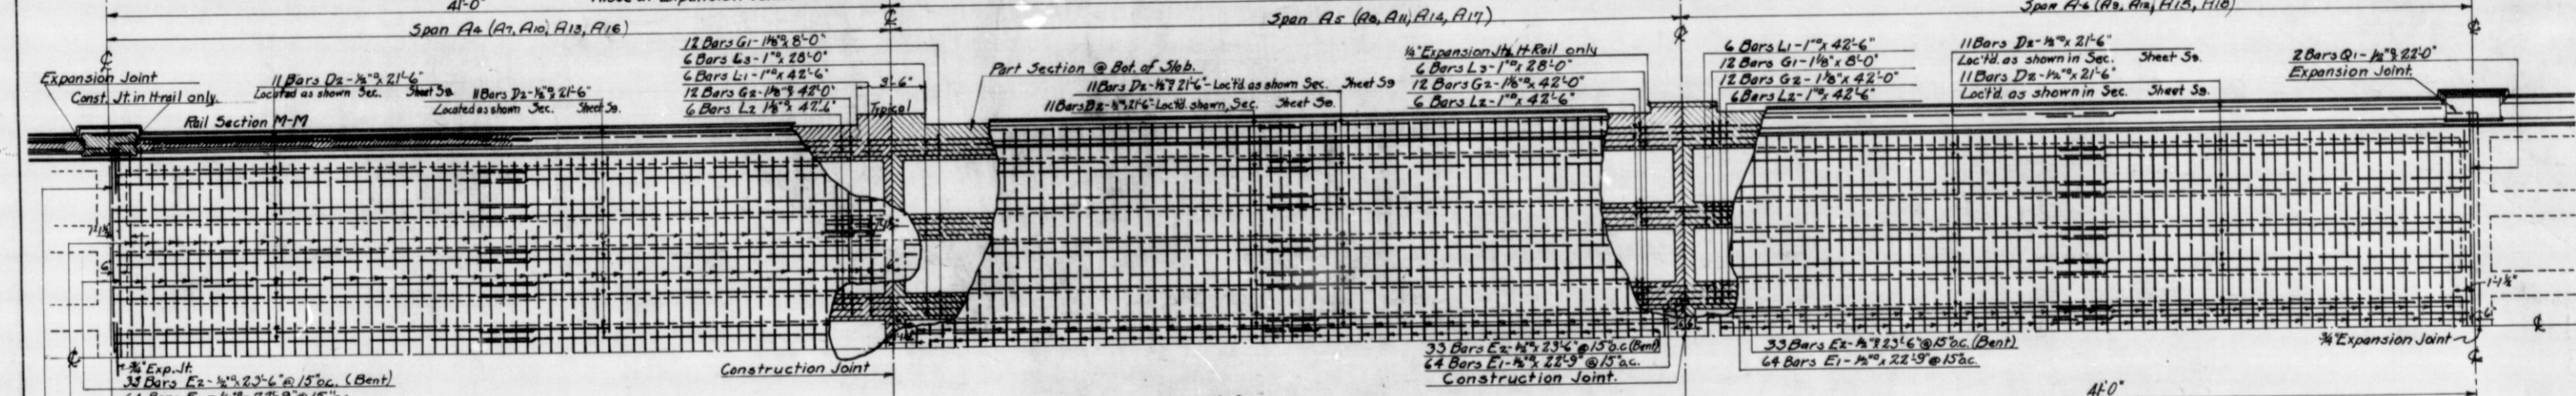 41'-0"
Span A4 (A7, A10, A13, A16)
Span A5 (A8, A11, A14, A17)
Span A6 (A9, A12, A15, A18)
Expansion Joint
Const. Jt. in H-rail only.
Rail Section M-M
11 Bars D2-½"⌀x 21'-6"
Located as shown Sec. Sheet S9.
11 Bars D2-½"⌀x 21'-6"
Located as shown Sec. Sheet S9.
12 Bars G1-1⅛"⌀x 8'-0"
6 Bars L3-1"⌀x 28'-0"
6 Bars L1-1"⌀x 42'-6"
12 Bars G2-1⅛"⌀x 42'-0"
6 Bars L2 1⅛"⌀x 42'-6"
3'-6"
Typical
Part Section @ Bot. of Slab.
11 Bars D2-½"⌀x 21'-6"-Loc't'd as shown Sec. Sheet S9
11 Bars D2-½"⌀x 21'-6"-Loc't'd. shown, Sec. Sheet S9.
¼" Expansion Jt. H-Rail only
6 Bars L3-1"⌀x 28'-0"
12 Bars G2-1⅛"⌀x 42'-0"
6 Bars L2-1"⌀x 42'-6"
6 Bars L1-1"⌀x 42'-6"
12 Bars G1-1⅛"⌀x 8'-0"
12 Bars G2-1⅛"⌀x 42'-0"
6 Bars L2-1"⌀x 42'-6"
11 Bars D2-½"⌀x 21'-6"
Loc't'd. as shown in Sec. Sheet S9.
11 Bars D2-½"⌀x 21'-6"
Loc't'd. as shown in Sec. Sheet S9.
2 Bars Q1-½"⌀x 22'-0"
Expansion Joint.
1'-1½"
6"
6"
¾" Exp. Jt.
33 Bars E2-½"⌀x 23'-6" @ 15" o.c. (Bent)
Construction Joint
33 Bars E2-½"⌀x 23'-6" @ 15" o.c. (Bent)
64 Bars E1-½"⌀x 22'-9" @ 15" o.c.
Construction Joint.
33 Bars E2-½"⌀x 23'-6" @ 15" o.c. (Bent)
64 Bars E1-½"⌀x 22'-9" @ 15" o.c.
¾" Expansion Joint
41'-0"